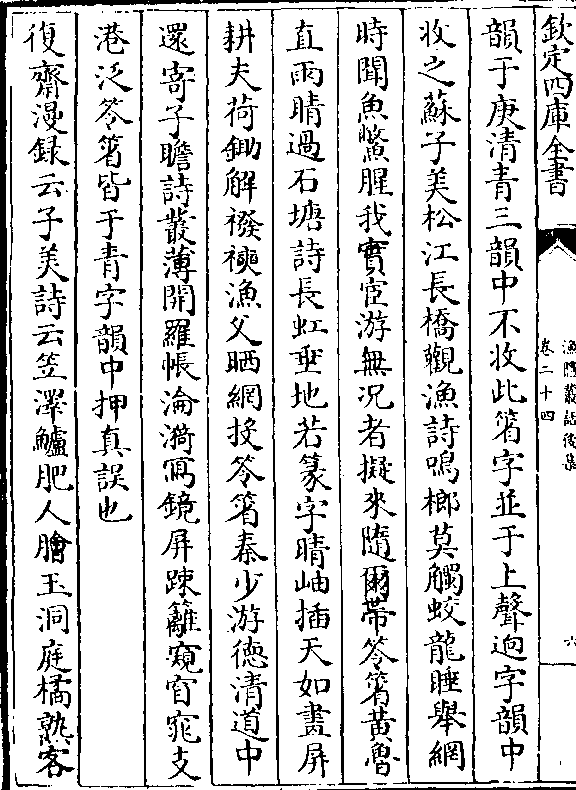 欽定四庫全書
漁隱叢話後集
卷二十四
六
韻于庚清青三韻中不收此箵字並于上聲迥字韻中
收之蘇子美松江長橋觀漁詩鳴榔莫觸蛟龍睡舉網
時聞魚鱉腥我實宦游無况者擬來隨爾帶笭箵黄魯
直雨晴過石塘詩長虹垂地若篆字晴岫插天如畫屏
耕夫荷鋤解襏襫漁父晒網投笭箵秦少游德清道中
還寄子瞻詩叢薄開羅帳淪漪寫鏡屏踈籬窺窅窕支
港泛笭箵皆于青字韻中押真誤也
復齋漫録云子美詩云笠澤鱸肥人膾玉洞庭橘熟客